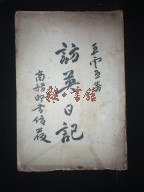 王雲五著
訪英日記
商務印書館發行